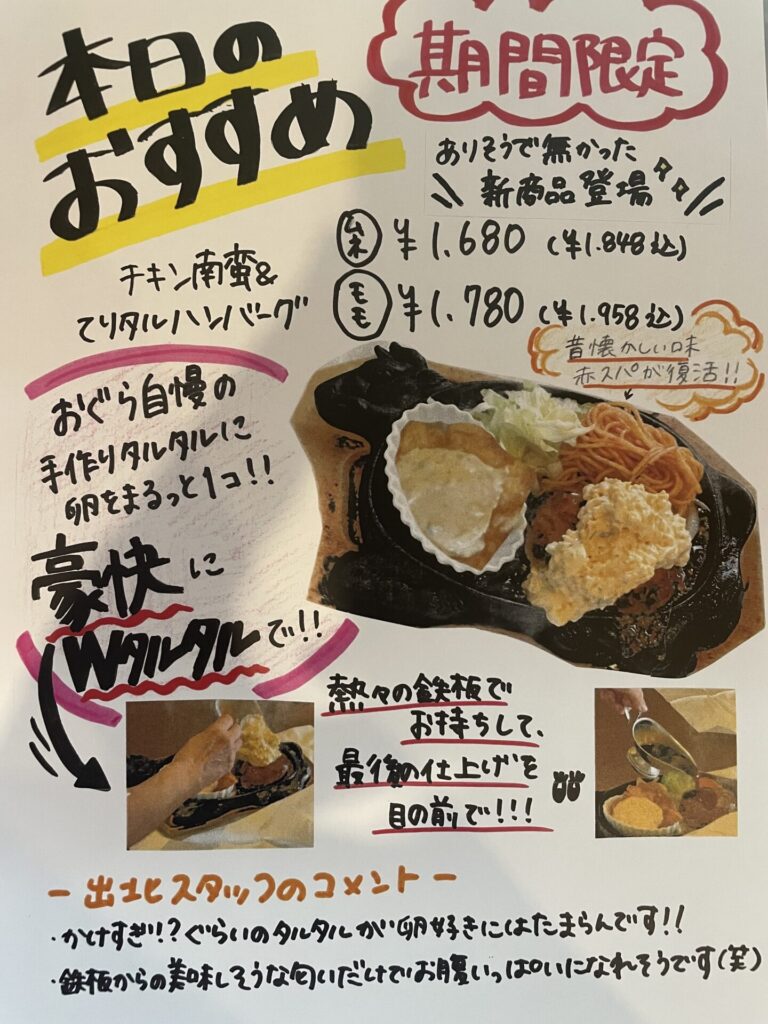 本日の
おすすめ
期間限定
ありそうで無かった
新商品登場
チキン南蛮&
てりタルハンバーグ
ムネ ¥1.680 (¥1.848込)
モモ ¥1.780 (¥1.958込)
昔懐かしい味
赤スパが復活!!
おぐら自慢の
手作りタルタルに
卵をまるっと1コ!!
豪快に
Wタルタルで!!
熱々の鉄板で
お持ちして、
最後の仕上げを
目の前で!!!
－出北スタッフのコメント－
・かけすぎ!!?ぐらいのタルタルが卵好きにはたまらんです!!
・鉄板からの美味しそうな匂いだけでお腹いっぱいになれそうです(笑)